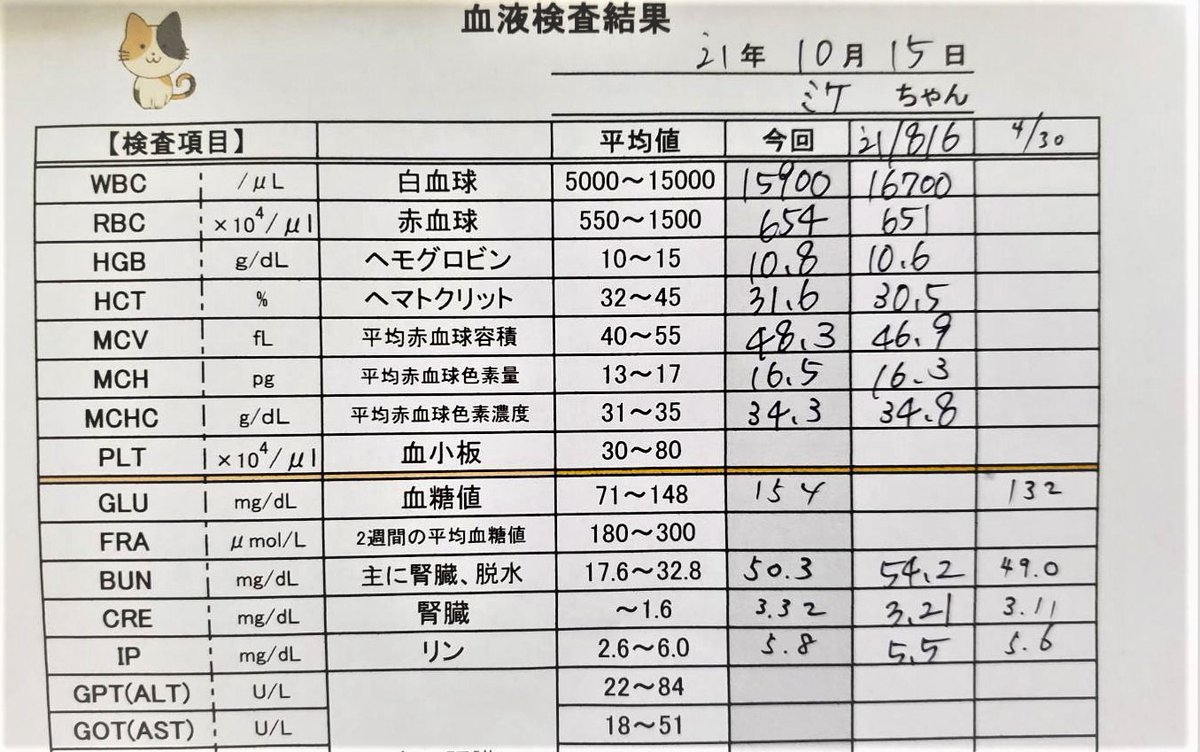 血液検査結果
'21年 10月 15日
ミケ ちゃん
【検査項目】 平均値 今回 '21/8/6 4/30
WBC /μL 白血球 5000～15000 15900 16700
RBC ×10⁴/μl 赤血球 550～1500 654 651
HGB g/dL ヘモグロビン 10～15 10.8 10.6
HCT % ヘマトクリット 32～45 31.6 30.5
MCV fL 平均赤血球容積 40～55 48.3 46.9
MCH pg 平均赤血球色素量 13～17 16.5 16.3
MCHC g/dL 平均赤血球色素濃度 31～35 34.3 34.8
PLT ×10⁴/μl 血小板 30～80
GLU mg/dL 血糖値 71～148 154 132
FRA μmol/L 2週間の平均血糖値 180～300
BUN mg/dL 主に腎臓、脱水 17.6～32.8 50.3 54.2 49.0
CRE mg/dL 腎臓 ～1.6 3.32 3.21 3.11
IP mg/dL リン 2.6～6.0 5.8 5.5 5.6
GPT(ALT) U/L 22～84
GOT(AST) U/L 18～51